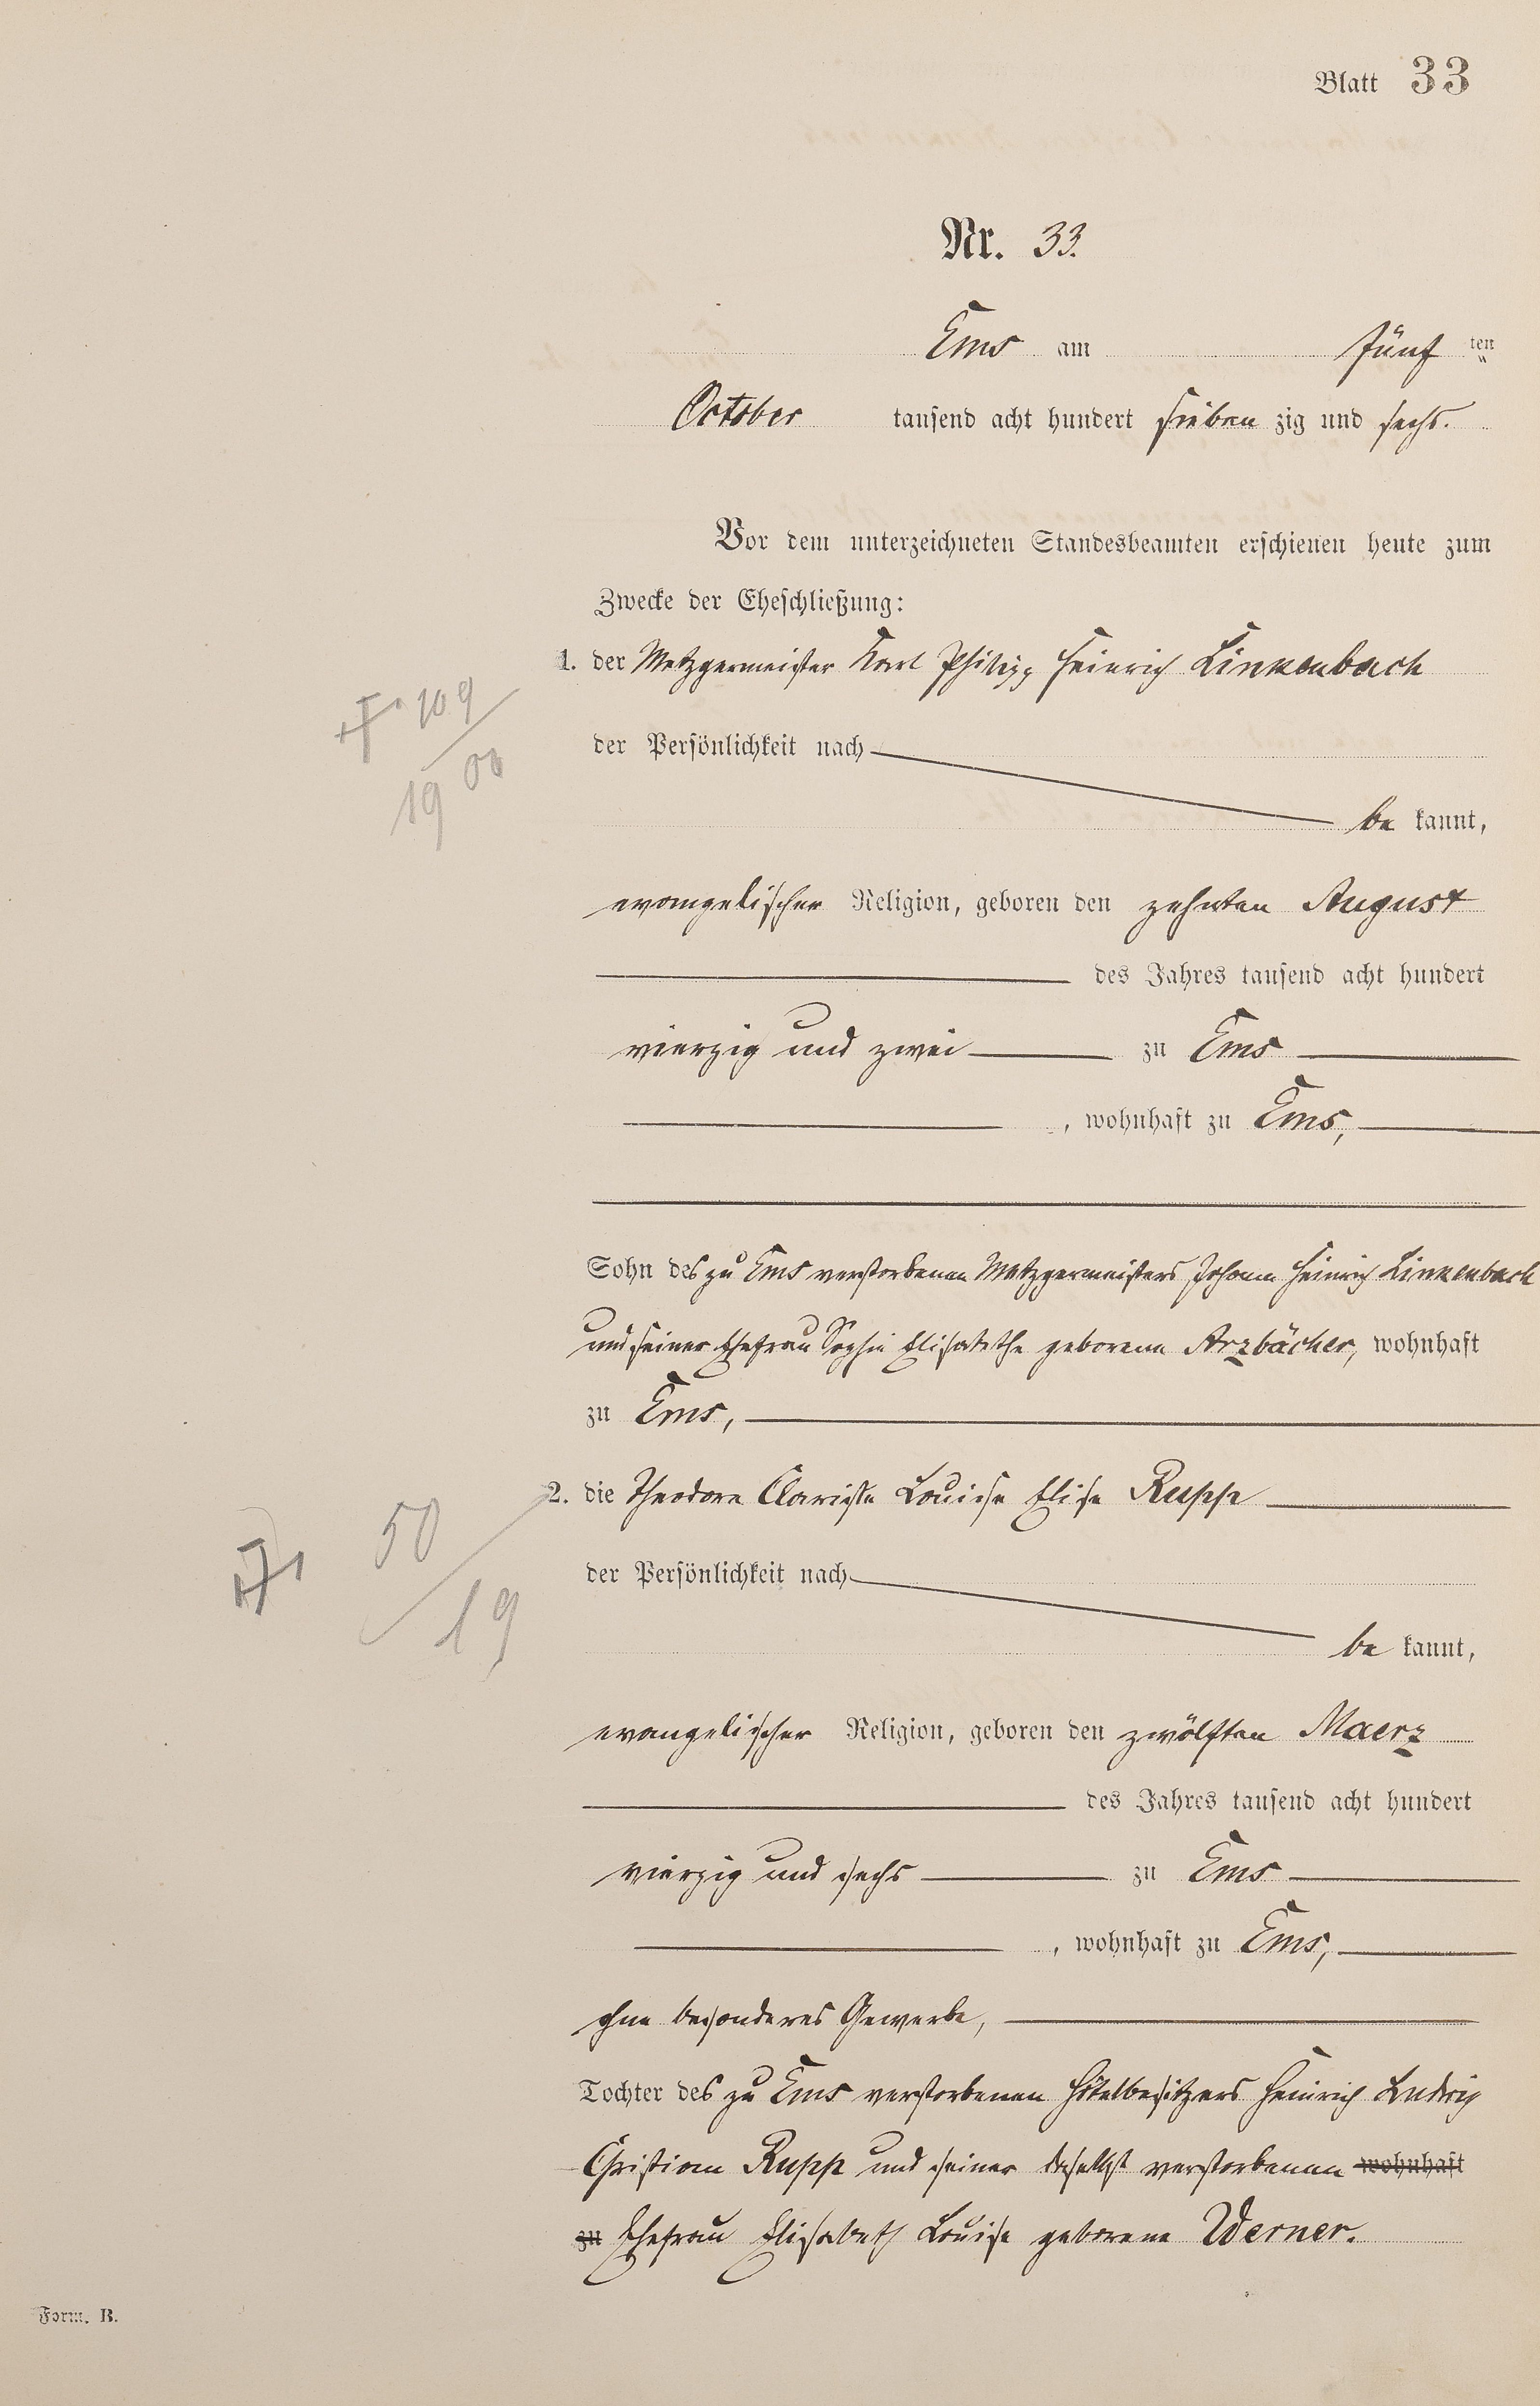 Blatt 33
Nr. 33.
Ems am fünf ten
October tausend acht hundert sieben zig und sechs.
Vor dem unterzeichneten Standesbeamten erschienen heute zum
Zwecke der Eheschließung:
1. der Metzgermeister Karl Philipp Heinrich Linkenbach
der Persönlichkeit nach
be kannt,
evangelischer Religion, geboren den zehnten August
des Jahres tausend acht hundert
vierzig und zwei zu Ems
, wohnhaft zu Ems,
Sohn des zu Ems verstorbenen Metzgermeisters Johann Heinrich Linkenbach
und seiner Ehefrau Sophie Elisabethe geborene Arzbächer, wohnhaft
zu Ems,
2. die Theodore Clarissa Louise Elise Rupp
der Persönlichkeit nach
be kannt,
evangelischer Religion, geboren den zwölften Maerz
des Jahres tausend acht hundert
vierzig und sechs zu Ems
, wohnhaft zu Ems,
ohne besonderes Gewerbe,
Tochter des zu Ems verstorbenen Hôtelbesitzers Heinrich Ludwig
Christian Rupp und seiner daselbst verstorbenen wohnhaft
zu Ehefrau Elisabeth Louise geborene Werner.
109
1900
50
19
Form. B.